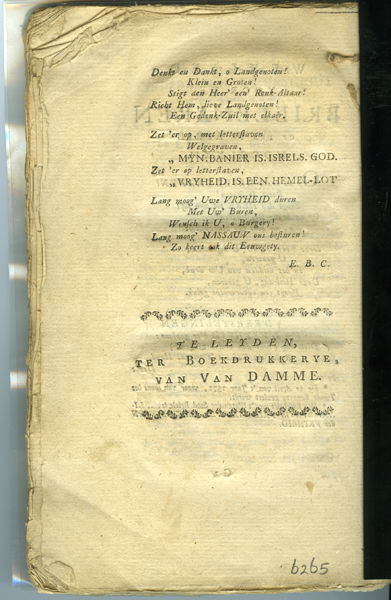 Denkt en Dankt, o Landgenoten!
Klein en Groten!
Stigt den Heer' een' Reuk-Altaar!
Richt Hem, lieve Landgenoten!
Een Gedenk-Zuil met elkaêr.
Zet 'er op, met letterstaven
Welgegraven,
„ MYN. BANIER IS. ISRELS. GOD.
Zet 'er op letterstaven,
„VRYHEID. IS. EEN. HEMEL-LOT
Lang moog' Uwe VRYHEID duren
Met Uw' Buren,
Wensch ik U, o Burgery!
Lang moog' NASSAUW ons besturen!
Zo keere ook dit Eeuwgety.
E. B. C.
TE LEYDEN,
TER BOEKDRUKKERYE,
VAN VAN DAMME.
6265